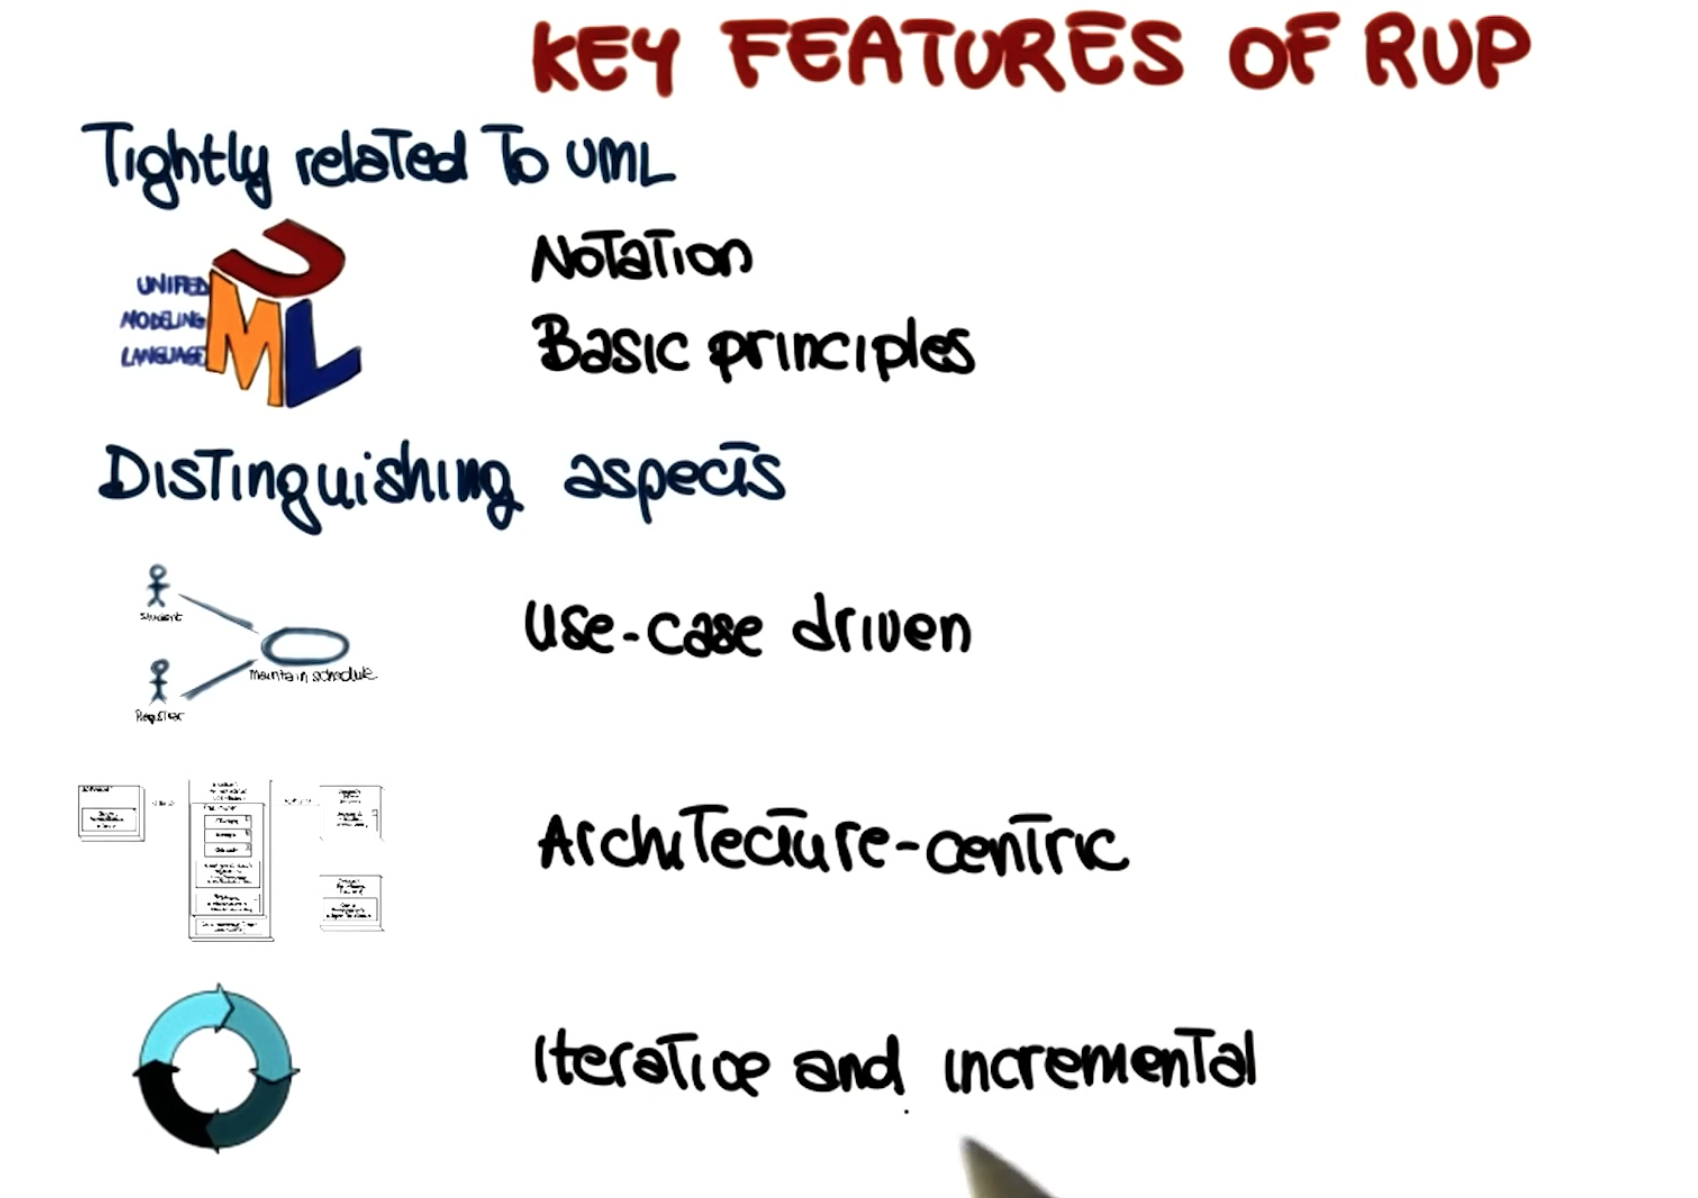 KEY FEATURES OF RUP
Tightly related to UML
UML
UNIFIED
MODELING
LANGUAGE
Notation
Basic principles
Distinguishing aspects
Student
maintain schedule
Registrar
Use-case driven
Architecture-centric
Iterative and incremental